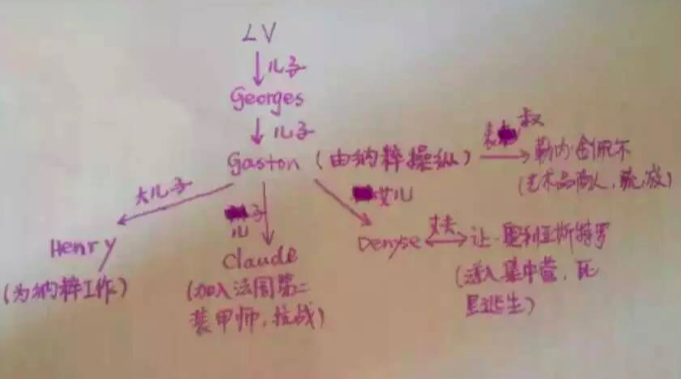 LV
儿子
Georges
儿子
Gaston (由纳粹操纵)
表 叔
勒内·金佩尔
(艺术品商人,流放)
大儿子
Henry
(为纳粹工作)
儿子
Claude
(加入法国第二
装甲师,抗战)
女儿
Denyse
丈夫
让·奥利亚斯特罗
(送入集中营,死
里逃生)